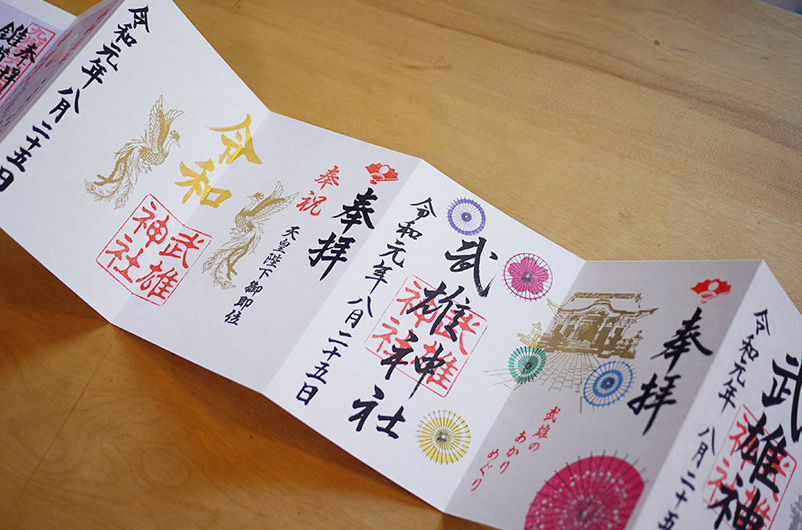 武雄神
武雄
神社
令和元年 八月二十五
奉拝
武雄の
あかり
めぐり
武雄神社
武雄
神社
令和元年 八月二十五日
奉拝
奉祝
天皇陛下御即位
令和
武雄
神社
令和元年 八月二十五日
奉拝